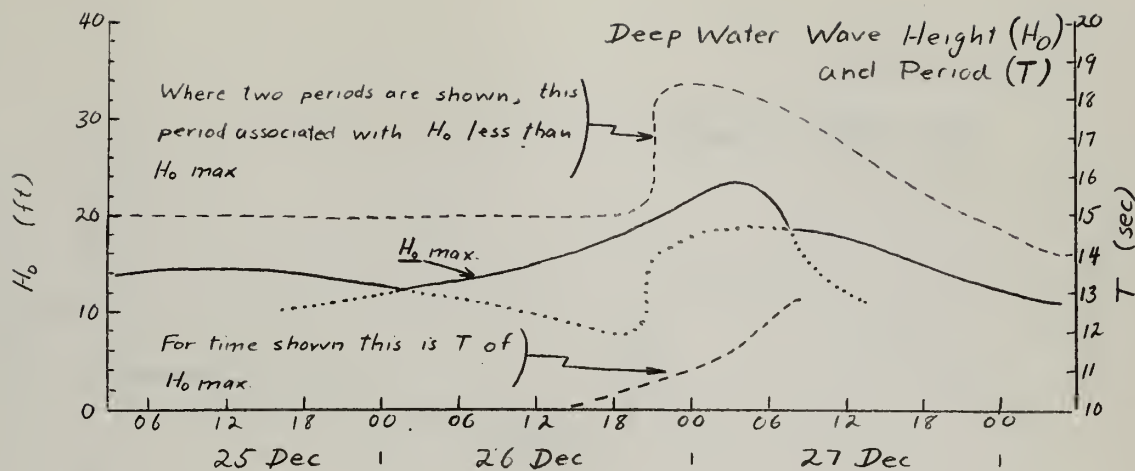 Deep Water Wave Height (H₀)
and Period (T)
Where two periods are shown, this
period associated with H₀ less than
H₀ max
H₀ max.
For time shown this is T of
H₀ max.
H₀ (ft)
40
30
20
10
0
T (sec)
20
19
18
17
16
15
14
13
12
11
10
06 12 18 00 06 12 18 00 06 12 18 00
25 Dec 26 Dec 27 Dec